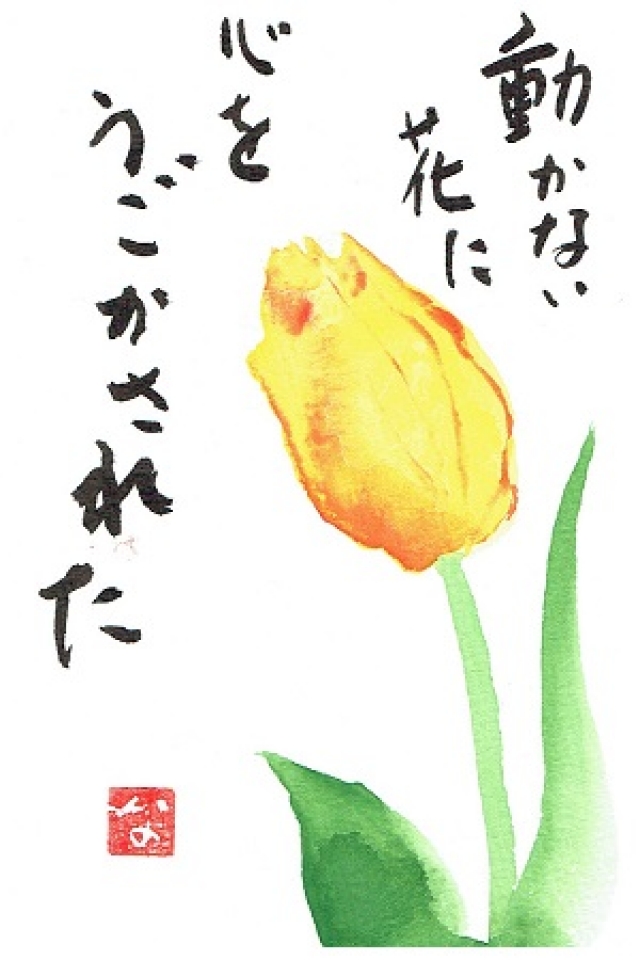 動かない
花に
心を
うごかされた
かの